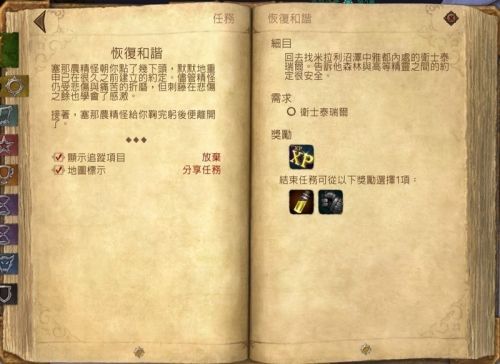 任務
恢復和諧
塞那農精怪朝你點了幾下頭，默默地重
申已在很久之前建立的約定。儘管精怪
仍受悲傷與痛苦的折磨，但刺藤在悲傷
之餘也學會了感激。
接著，塞那農精怪給你鞠完躬後便離開
了。
顯示追蹤項目 放棄
地圖標示 分享任務
恢復和諧
細目
回去找米拉利沼澤中雅都內處的衛士泰
瑞爾。告訴他森林與高等精靈之間的約
定很安全。
需求
衛士泰瑞爾
獎勵
XP
結束任務可從以下獎勵選擇1項：